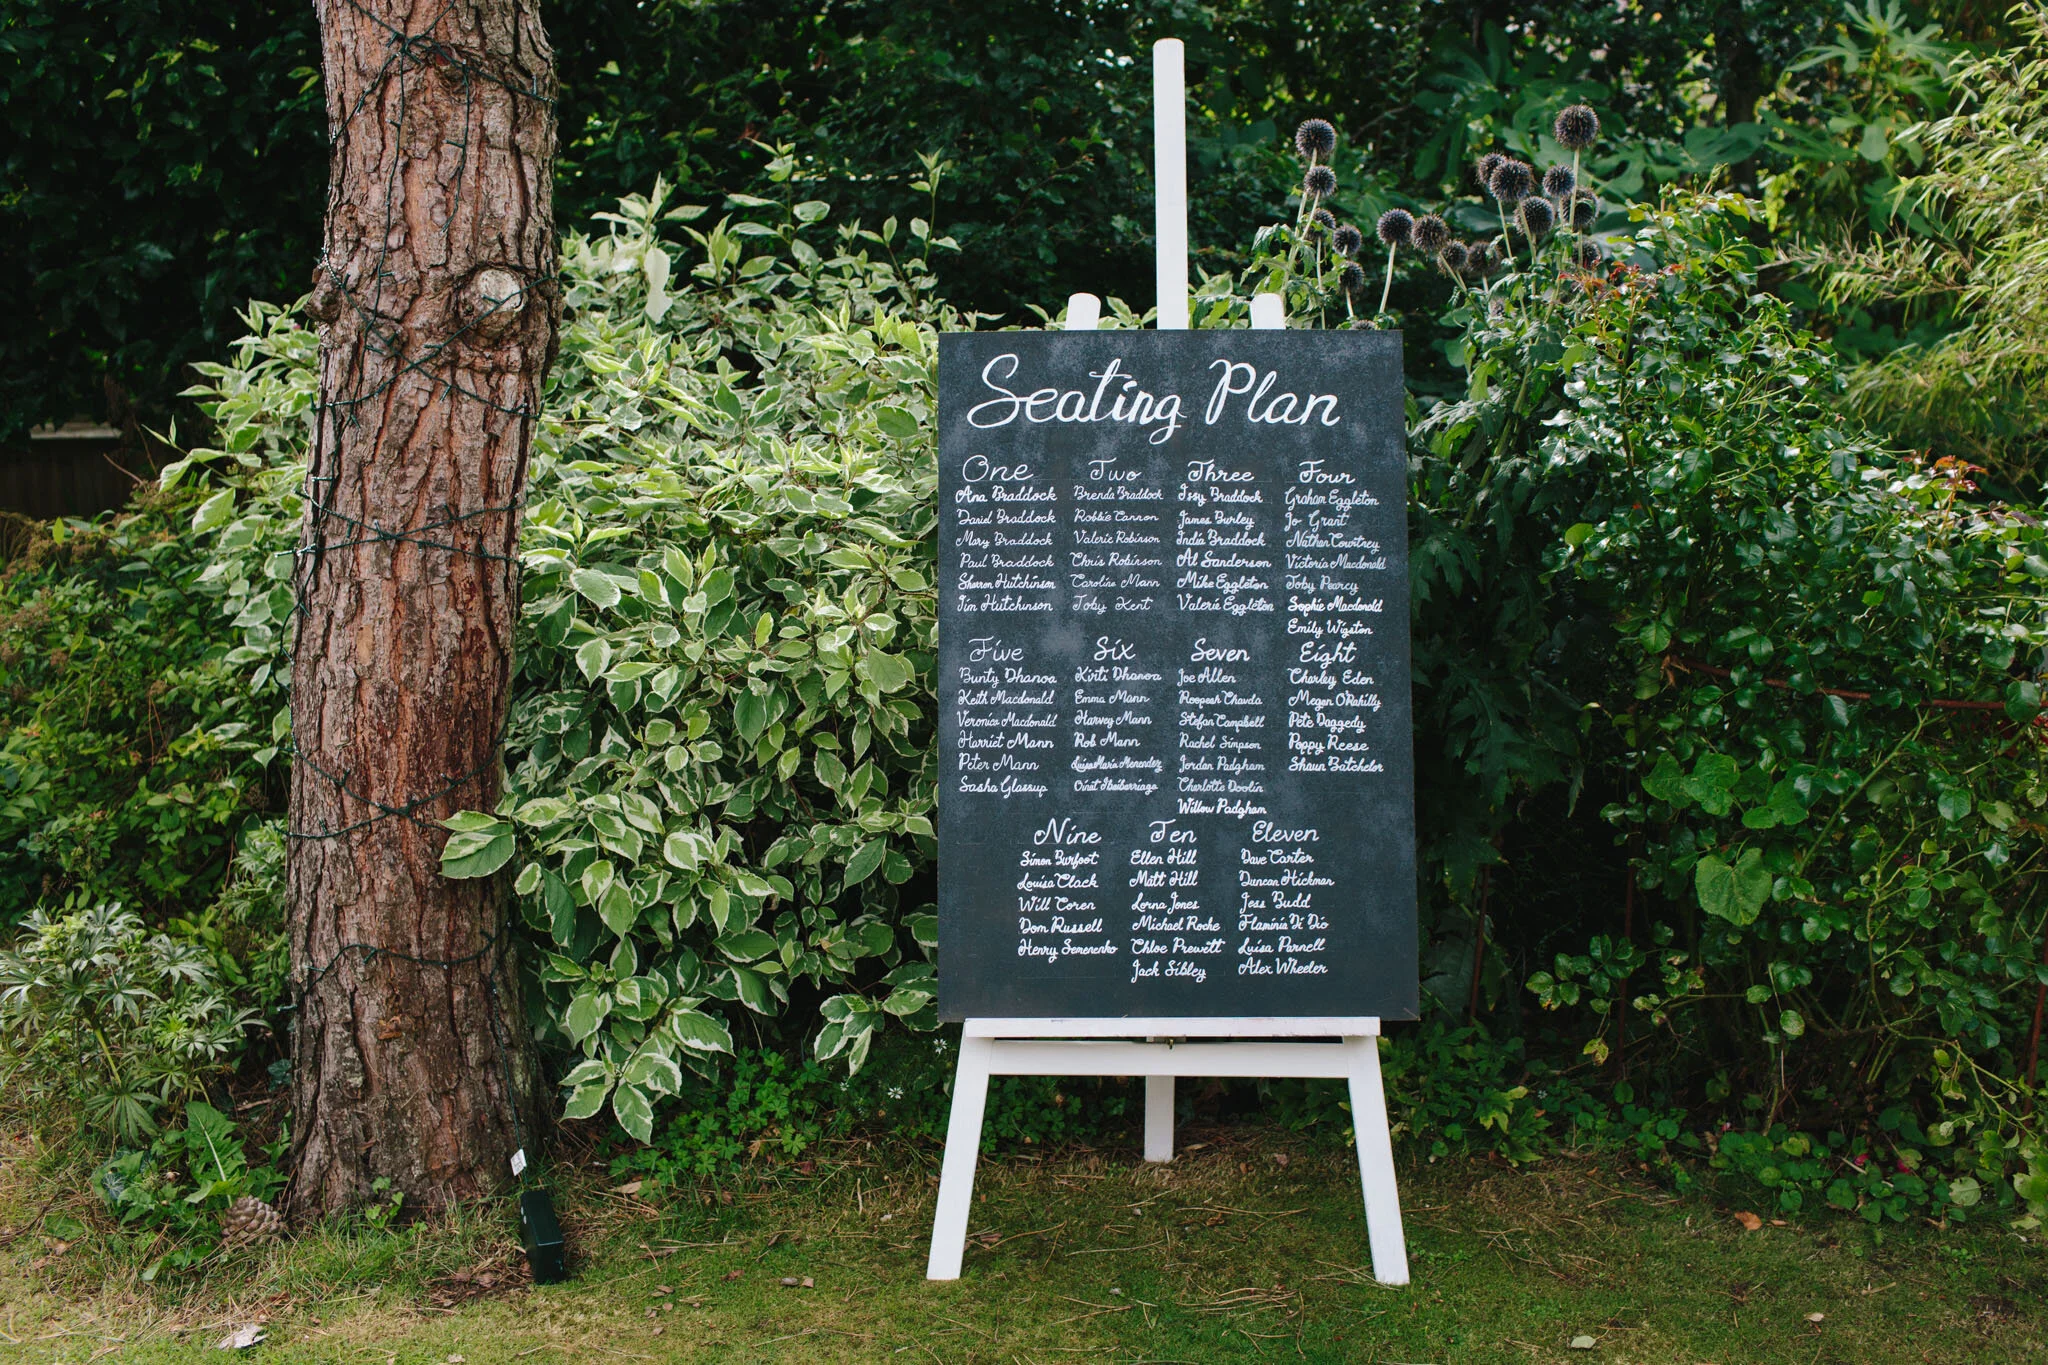 Seating Plan
One
Ana Braddock
Daniel Braddock
Mary Braddock
Paul Braddock
Sharron Hutchinson
Jim Hutchinson
Two
Brenda Braddock
Robbie Cannon
Valerie Robinson
Chris Robinson
Caroline Mann
Toby Kent
Three
Issy Braddock
James Burley
India Braddock
Al Sanderson
Mike Eggleton
Valerie Eggleton
Four
Graham Eggleton
Jo Grant
Nathan Courtney
Victoria Macdonald
Toby Pearcy
Sophie Macdonald
Emily Wigston
Five
Bunty Dhanoa
Keith Macdonald
Veronica Macdonald
Harriet Mann
Peter Mann
Sasha Glassup
Six
Kirti Dhanoa
Emma Mann
Harvey Mann
Rob Mann
Luisa Maria Menendez
Seven
Joe Allen
Roopesh Chavda
Stefan Campbell
Rachel Simpson
Jordan Padgham
Charlotte Doolin
Willow Padgham
Eight
Charley Eden
Megan O'Rahilly
Pete Daggedy
Poppy Reese
Shaun Batchelor
Nine
Simon Burfoot
Louisa Clack
Will Coren
Dom Russell
Henry Semenenko
Ten
Ellen Hill
Matt Hill
Lorna Jones
Michael Roche
Chloe Prewett
Jack Sibley
Eleven
Dave Carter
Duncan Hickman
Jess Budd
Flaminia Di Dio
Luisa Parnell
Alex Wheeler